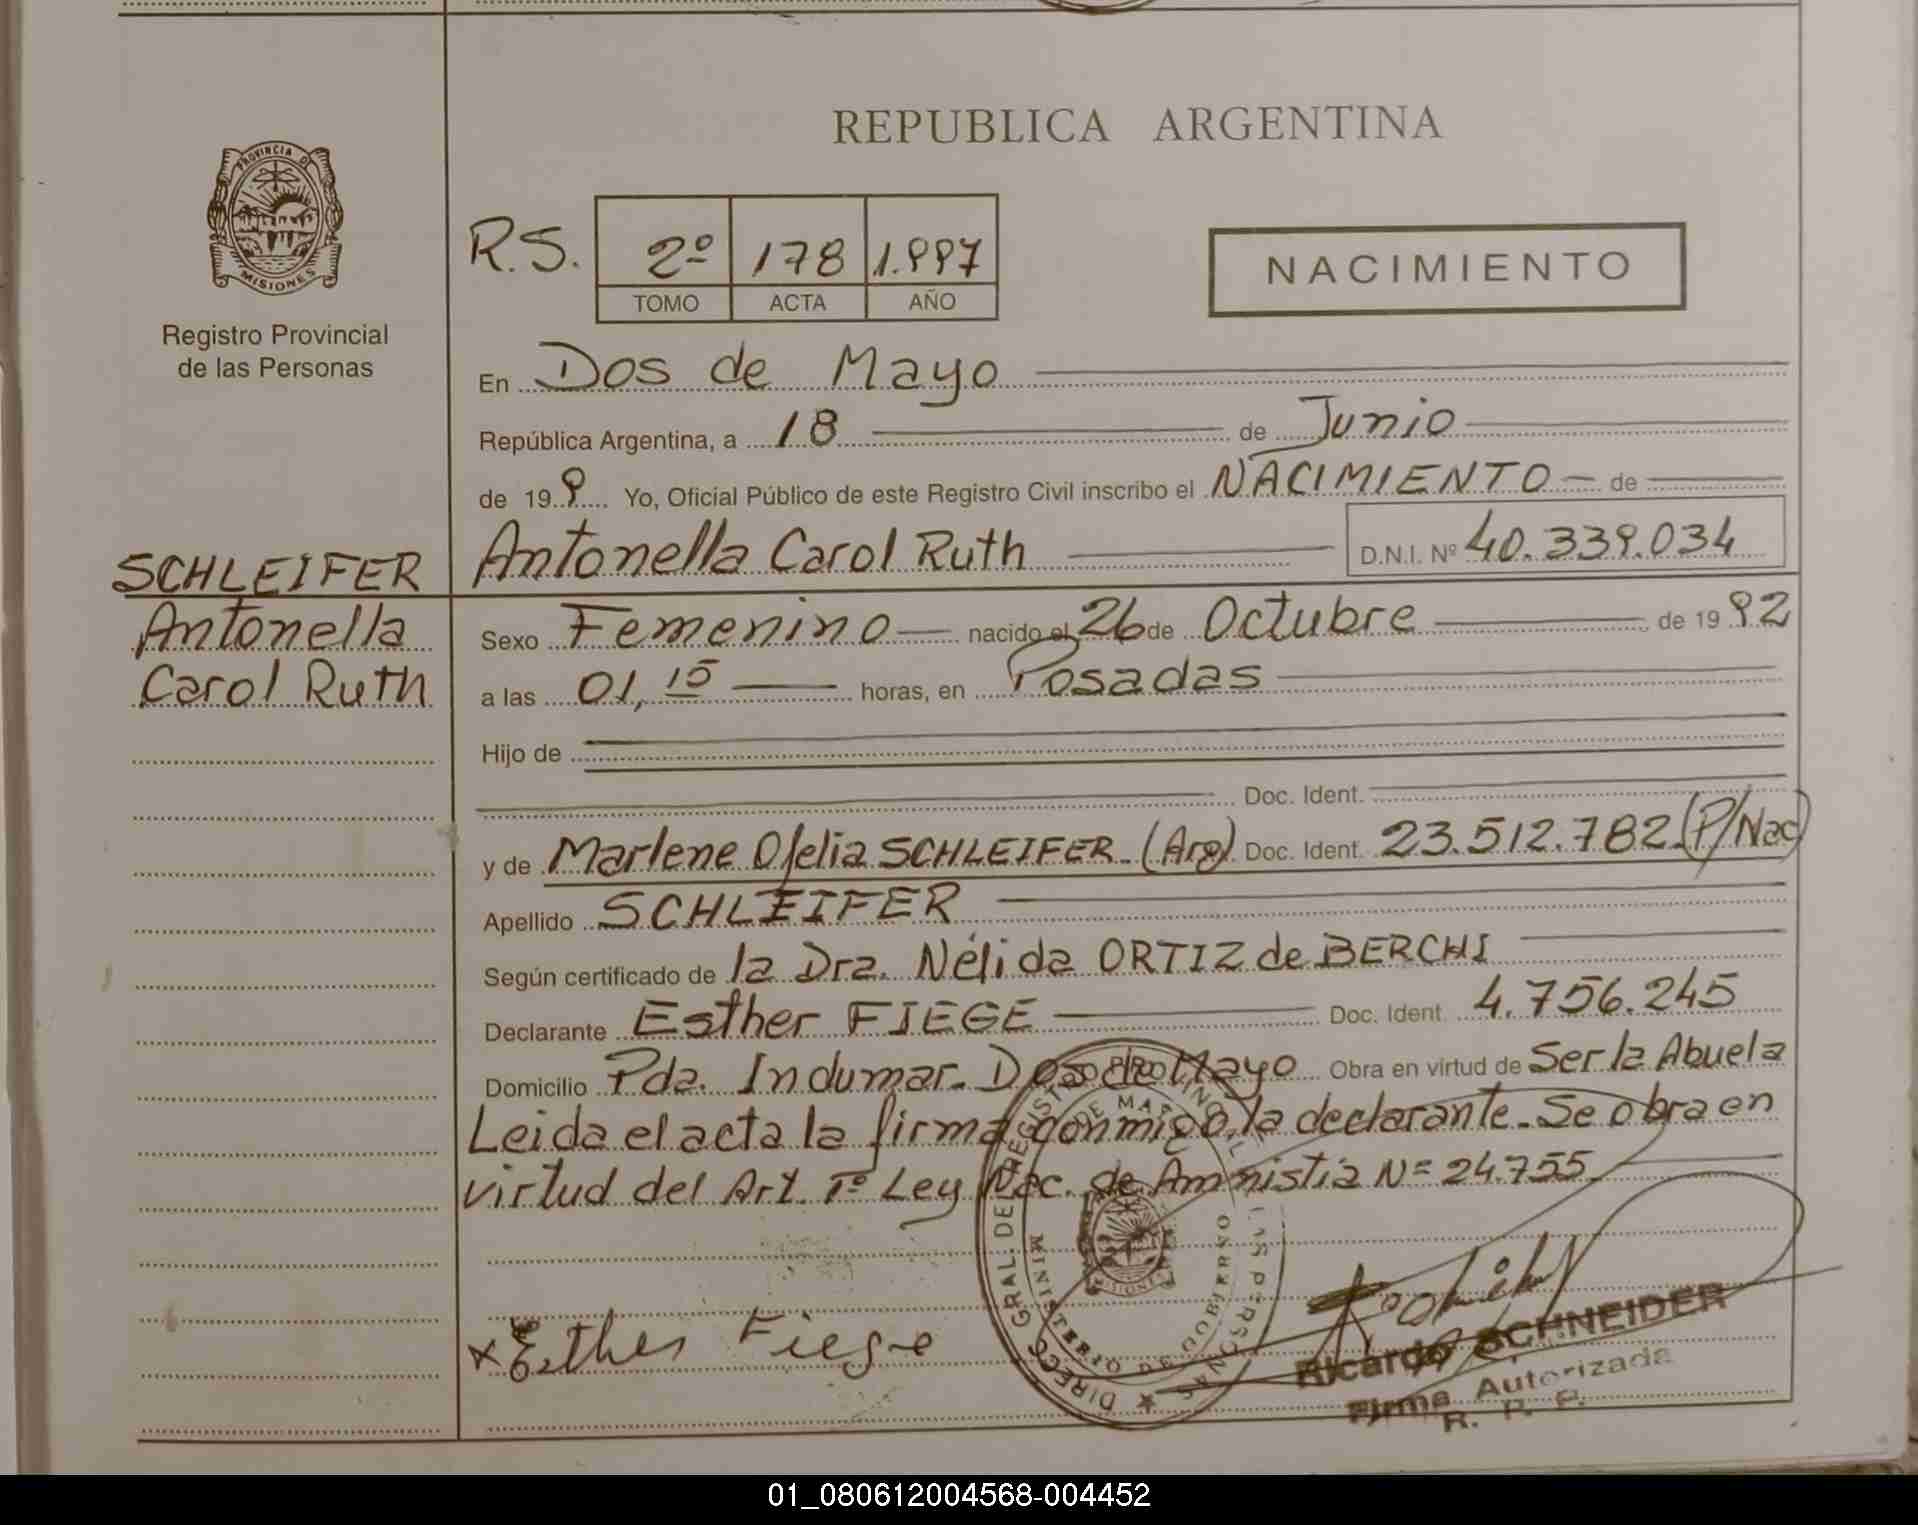 REPUBLICA ARGENTINA
PROVINCIA D
MISIONES
Registro Provincial
de las Personas
R.S. 2º 178 1.997
TOMO ACTA AÑO
NACIMIENTO
En Dos de Mayo
República Argentina, a 18 de Junio
de 199 Yo, Oficial Público de este Registro Civil inscribo el NACIMIENTO de
Antonella Carol Ruth D.N.I. Nº 40.339.034
SCHLEIFER
Antonella
Carol Ruth
Sexo Femenino nacido el 26 de Octubre de 1992
a las 01,15 horas, en Posadas
Hijo de
Doc. Ident.
y de Marlene Ofelia SCHLEIFER. (Arg) Doc. Ident. 23.512.782 (P/Nac)
Apellido SCHLEIFER
Según certificado de la Dra. Nélida ORTIZ de BERCHI
Declarante Esther FIEGE Doc. Ident. 4.756.245
Domicilio Pda. Indumar. Dos de Mayo Obra en virtud de Ser la Abuela
Leida el acta la firma conmigo, la declarante. Se obra en
virtud del Art. 1º Ley Nac. de Amnistia Nº 24.755
x Esther Fiege
DIRECC. GRAL. DE REGISTRO PROVINCIAL LAS PERSONAS
MINISTERIO DE GOBIERNO
MISIONES
Ricardo SCHNEIDER
Firma Autorizada
R. P. P.
01_080612004568-004452